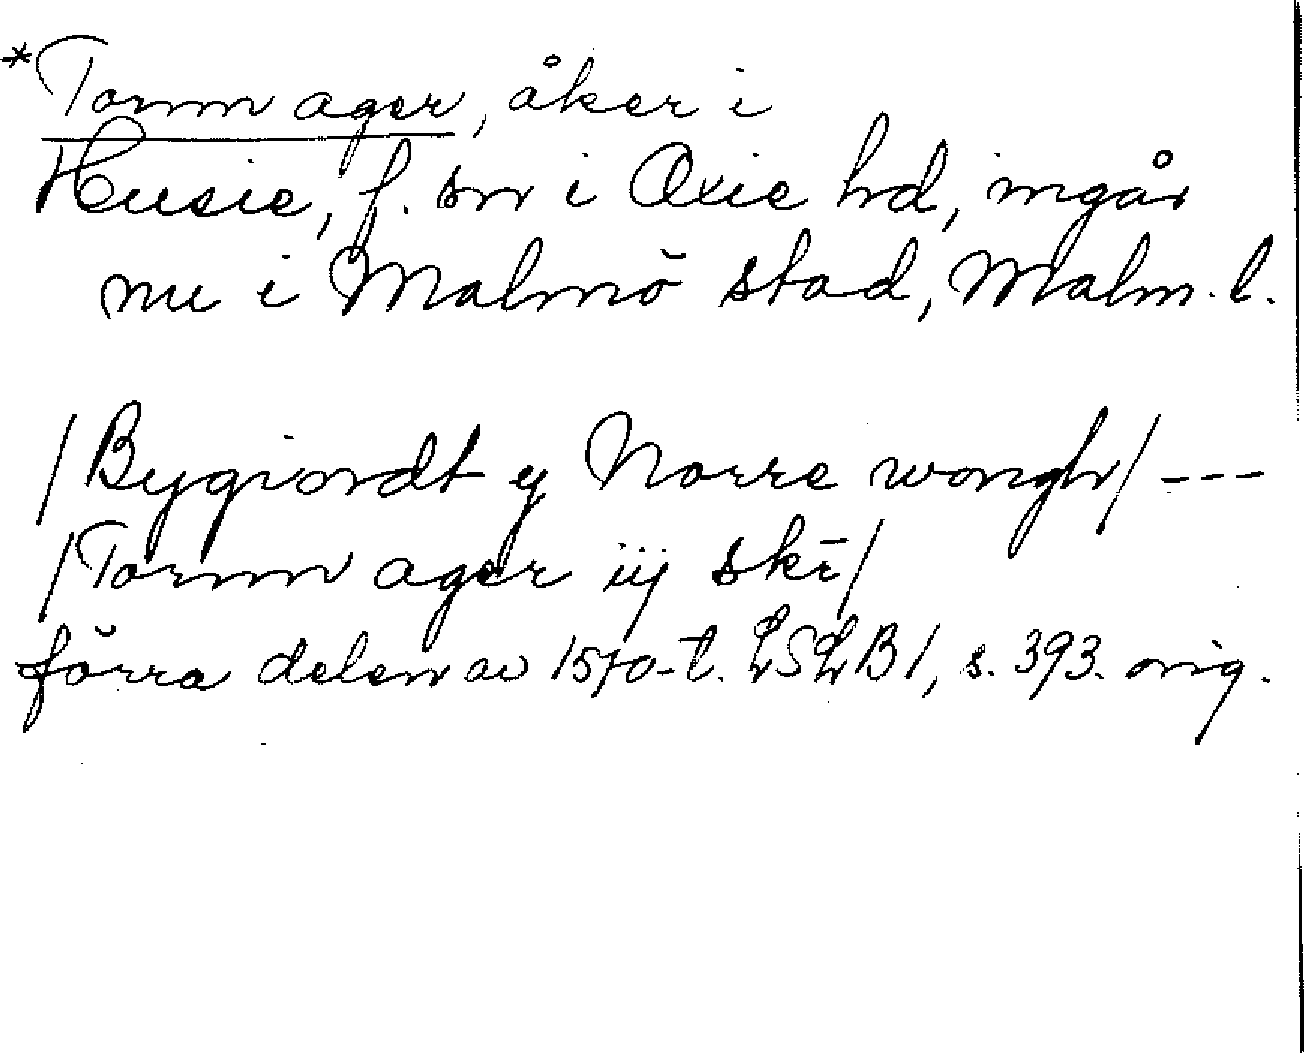 *Torm ager, åker i
Husie, f. sn i Oxie hd, ingår
nu i Malmö stad, Malm. l.
/Bygiordt y Norre wongh/ ---
/Torm ager iij skē/
förra delen av 1570-t. LSLB1, s. 393. orig.